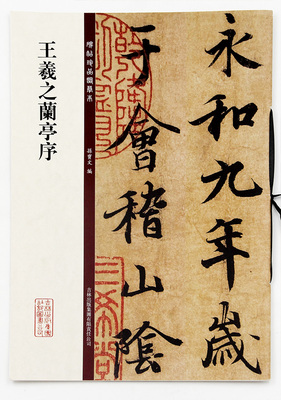 永和九年歲
于會稽山陰
碑帖珍品臨摹本
孫寶文 編
吉林出版集團有限責任公司
王羲之蘭亭序